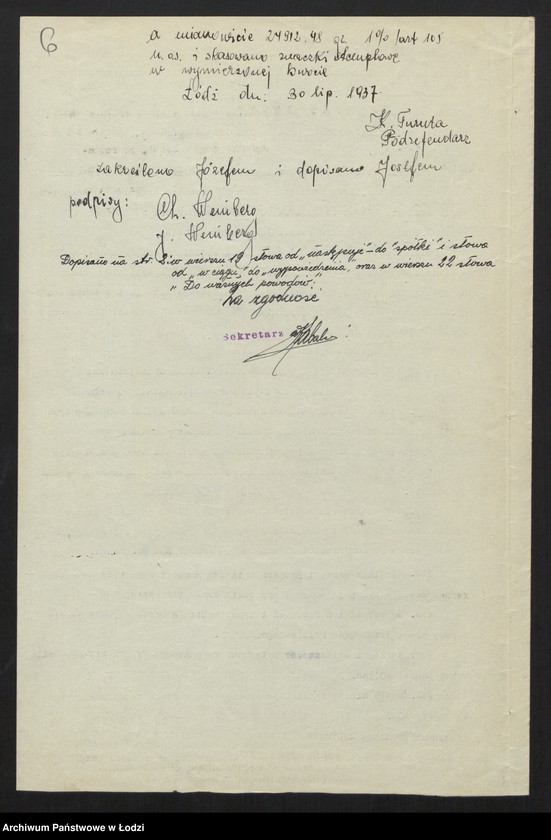 6
a mianowicie 24912.48 gr 1% /art 105
u.os. i skasowano znaczki stemplowe
w wymierzonej kwocie
Łódź dn. 30 lip. 1937
K. Furuta
Podreferendarz
zakreślono Józefem i dopisano Josefem
podpisy: Ch. Weinberg
J. Weinberg
Dopisano na str. 2 w wierszu 19 słowa od „następuje" – do „spółki" i słowa
od „w ciągu" do „wypowiedzenia", oraz w wierszu 22 słowa
„Do ważnych powodów".
Za zgodność
Sekretarz
Archiwum Państwowe w Łodzi